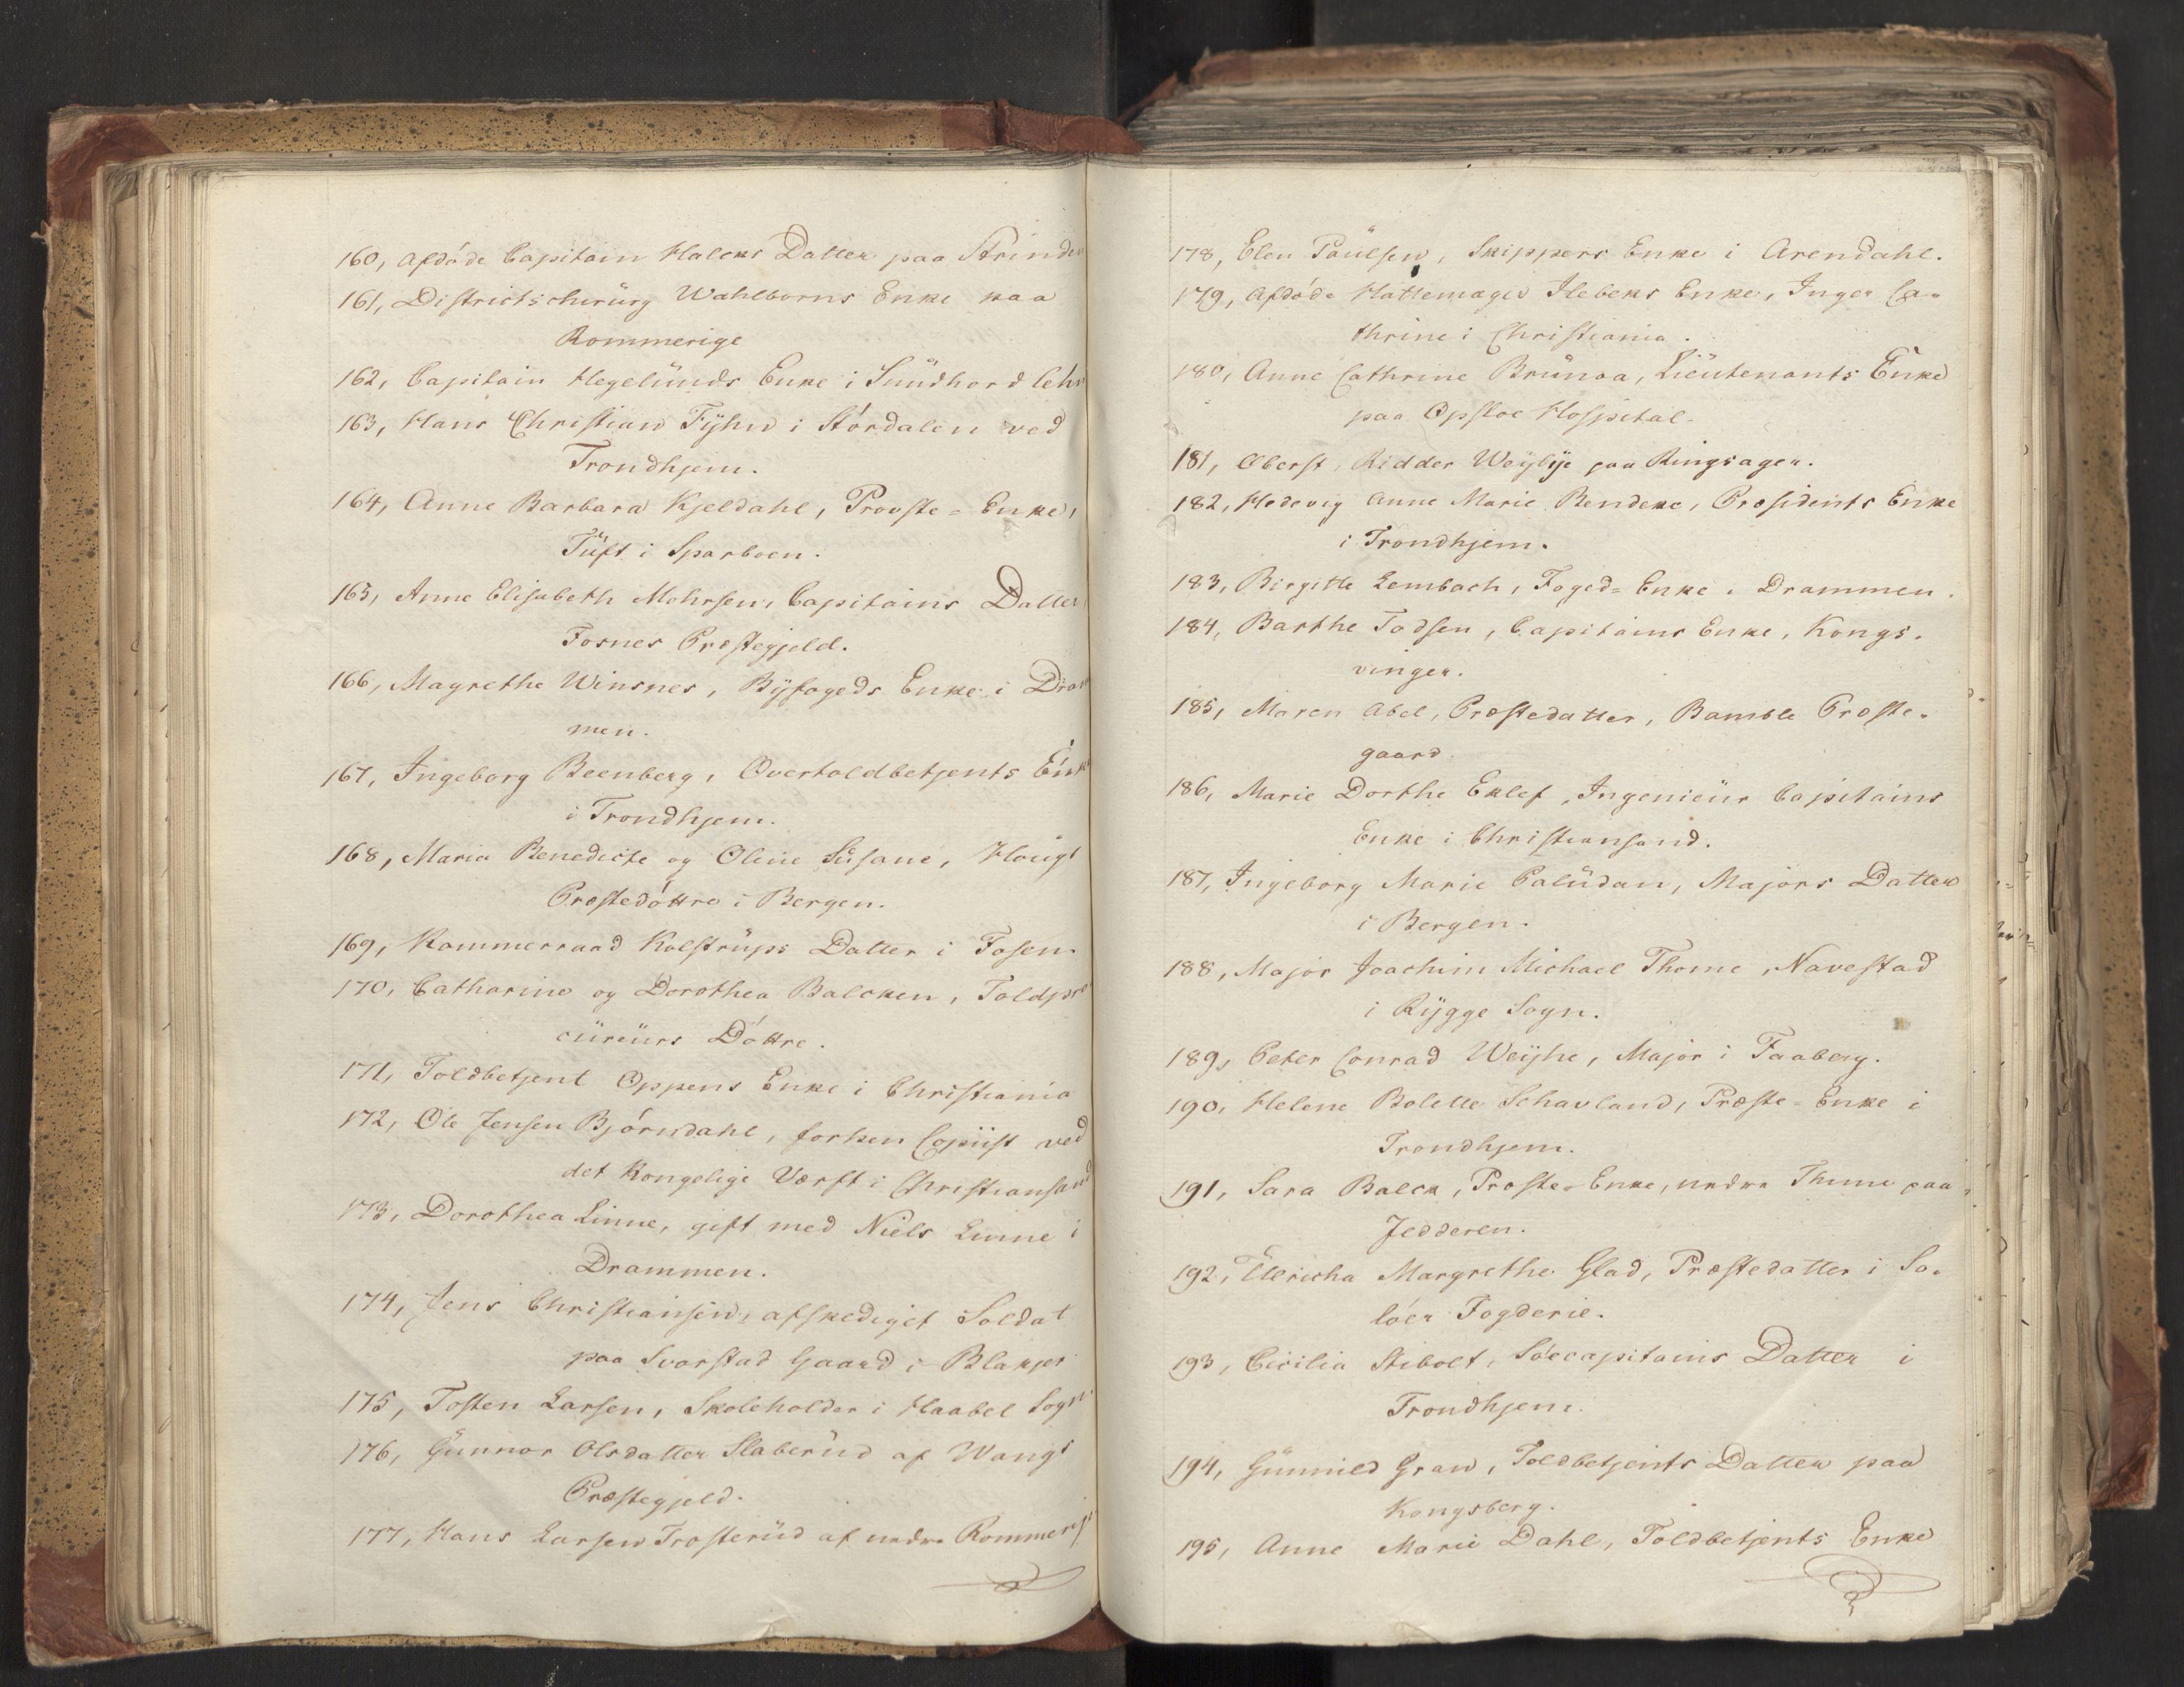 160, Afdøde Capitain Halcks Datter paa Strinden
161, Districtschirurg Wahlborns Enke paa
Rommerige
162, Capitain Hegelunds Enke i Sundhordlehn
163, Hans Christian Fyhn i Størdalen ved
Trondhjem.
164, Anne Barbara Kjeldahl, Provste=Enke,
Tuft i Sparboen.
165, Anne Elisabeth Mohrsen, Capitains Datter
Fosnes Præstegjeld.
166, Magrethe Winsnes, Byfogeds Enke i Dram
men.
167, Ingeborg Beenberg, Overtoldbetjents Enke
i Trondhjem.
168, Maria Benedicte og Oline Susane, Houg
Præstedøttre i Bergen.
169, Kammerraad Kolstrups Datter i Fosen.
170, Catharine og Dorothea Balcken, Toldpro
cureurs Døttre.
171, Toldbetjent Oppens Enke i Christiania
172, Ole Jensen Bjørndahl, forhen Copiist ved
det Kongelige Værft i Christiansand
173, Dorothea Linne, gift med Niels Linne i
Drammen.
174, Jens Christiansen, afskediget Soldat
paa Svarstad Gaard i Blakjer
175, Tosten Larsen, Skoleholder i Haabel Sogn.
176, Gunnor Olsdatter Slaberud af Wangs
Præstegjeld.
177, Hans Larsen Trosterud af nedre Rommerige
178, Elen Paulsen, Skippers Enke i Arendahl.
179, Afdøde Hattemager Ilebeks Enke, Inger Ca-
thrine i Christiania.
180, Anne Cathrine Brunoa, Lieutenants Enke
paa Opsloe Hospital.
181, Oberst, Ridder Weybye paa Ringsager.
182, Hedevig Anne Marie Bendeke, Præsidents Enke
i Trondhjem.
183, Birgitte Lembach, Foged=Enke i Drammen.
184, Barthe Todsen, Capitains Enke, Kongs-
vinger.
185, Maren Abel, Præstedatter, Bamble Præste-
gaard.
186, Marie Dorthe Eklef, Ingenieur Capitains
Enke i Christiansand.
187, Ingeborg Marie Paludan, Majors Datter
i Bergen.
188, Major Joachim Michael Thome, Navestad
i Rygge Sogn.
189, Peter Conrad Weyhe, Major i Faaberg.
190, Helene Bolette Schavland, Præste=Enke i
Trondhjem.
191, Sara Balck, Præste=Enke, nedre Thime paa
Jedderen.
192, Ulricha Margrethe Glad, Præstedatter i So-
løer Fogderie.
193, Cicilia Stibolt, Søecapitains Datter i
Trondhjem.
194, Gunnild Gran, Toldbetjents Datter paa
Kongsberg.
195, Anne Marie Dahl, Toldbetjents Enke